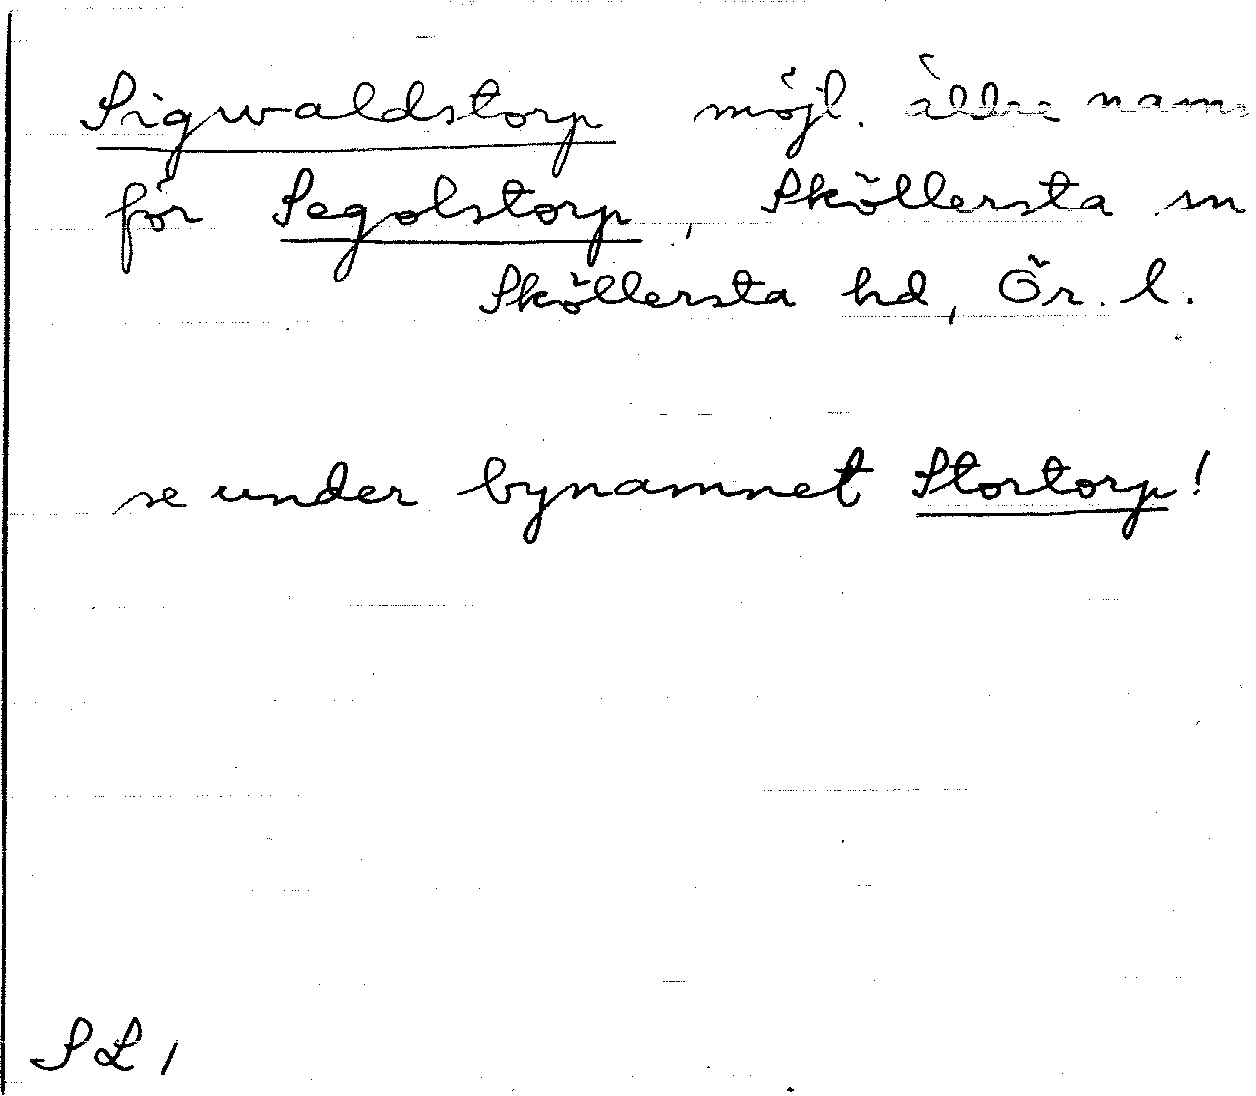 Sigwaldstorp möjl. äldre namn
för Segolstorp, Sköllersta sn
Sköllersta hd, Ör. l.
se under bynamnet Stortorp!
SL 1